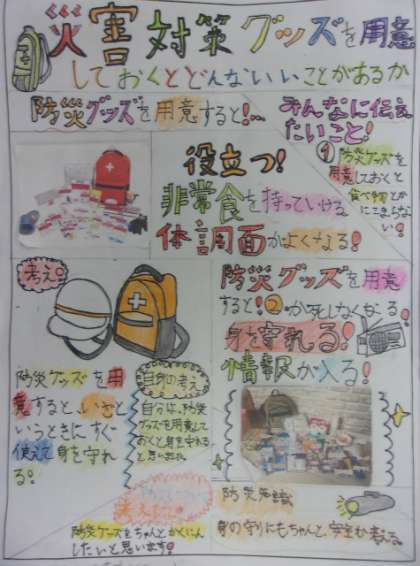 災害対策グッズを用意
しておくとどんないいことがあるか
防災グッズを用意すると!…
みんなに伝え
たいこと!
①防災グッズを
用意しておくと
食べ物とか
にこまらな
い!
役立つ!
非常食を持っていける
体調面がよくなる!
考え
防災グッズを用意
すると!②
身を守れる!
情報が入る!
防災グッズを用
意すると、いざと
いうときにすぐ
使えて身を守れ
る!
自身の考え
自分は、防災
グッズを用意して
おくと身を守れる
と思いました
防災グッズをちゃんとかくにん
したいと思います!
防災知識
身の守りにもちゃんと、安全か考える。